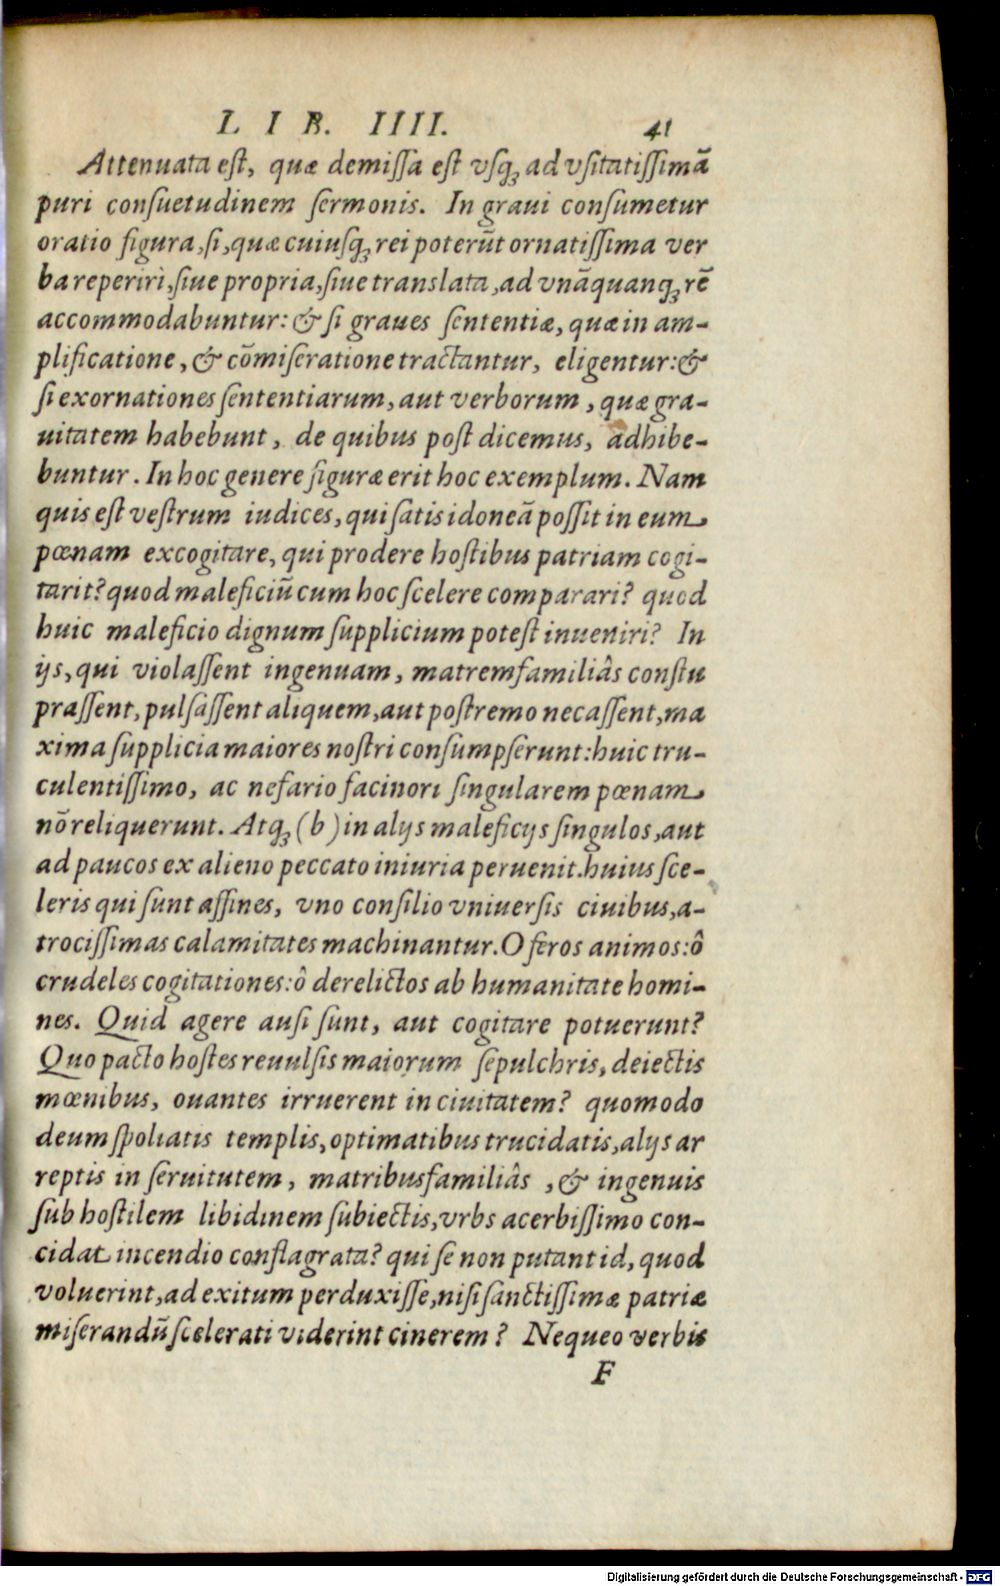 L I B. IIII. 41
Attenuata est, quæ demissa est vsq; ad vsitatissimã
puri consuetudinem sermonis. In graui consumetur
oratio figura, si, quæ cuiusq; rei poterũt ornatissima ver
ba reperiri, siue propria, siue translata, ad vnãquanq; rẽ
accommodabuntur: & si graues sententiæ, quæ in am-
plificatione, & cõmiseratione tractantur, eligentur: &
si exornationes sententiarum, aut verborum, quæ gra-
uitatem habebunt, de quibus post dicemus, adhibe-
buntur. In hoc genere figuræ erit hoc exemplum. Nam
quis est vestrum iudices, qui satis idoneã possit in eum
pœnam excogitare, qui prodere hostibus patriam cogi-
tarit? quod maleficiũ cum hoc scelere comparari? quod
huic maleficio dignum supplicium potest inueniri? In
ijs, qui violassent ingenuam, matremfamiliâs constu
prassent, pulsassent aliquem, aut postremo necassent, ma
xima supplicia maiores nostri consumpserunt: huic tru-
culentissimo, ac nefario facinori singularem pœnam
nõ reliquerunt. Atq; (b) in alijs maleficijs singulos, aut
ad paucos ex alieno peccato iniuria peruenit. huius sce-
leris qui sunt affines, vno consilio vniuersis ciuibus, a-
trocissimas calamitates machinantur. O feros animos: ô
crudeles cogitationes: ô derelictos ab humanitate homi-
nes. Quid agere ausi sunt, aut cogitare potuerunt?
Quo pacto hostes reuulsis maiorum sepulchris, deiectis
mœnibus, ouantes irruerent in ciuitatem? quomodo
deum spoliatis templis, optimatibus trucidatis, alijs ar
reptis in seruitutem, matribusfamiliâs, & ingenuis
sub hostilem libidinem subiectis, vrbs acerbissimo con-
cidat incendio conflagrata? qui se non putant id, quod
voluerint, ad exitum perduxisse, nisi sanctissimæ patriæ
miserandũ scelerati viderint cinerem? Nequeo verbis
F
Digitalisierung gefördert durch die Deutsche Forschungsgemeinschaft - DFG